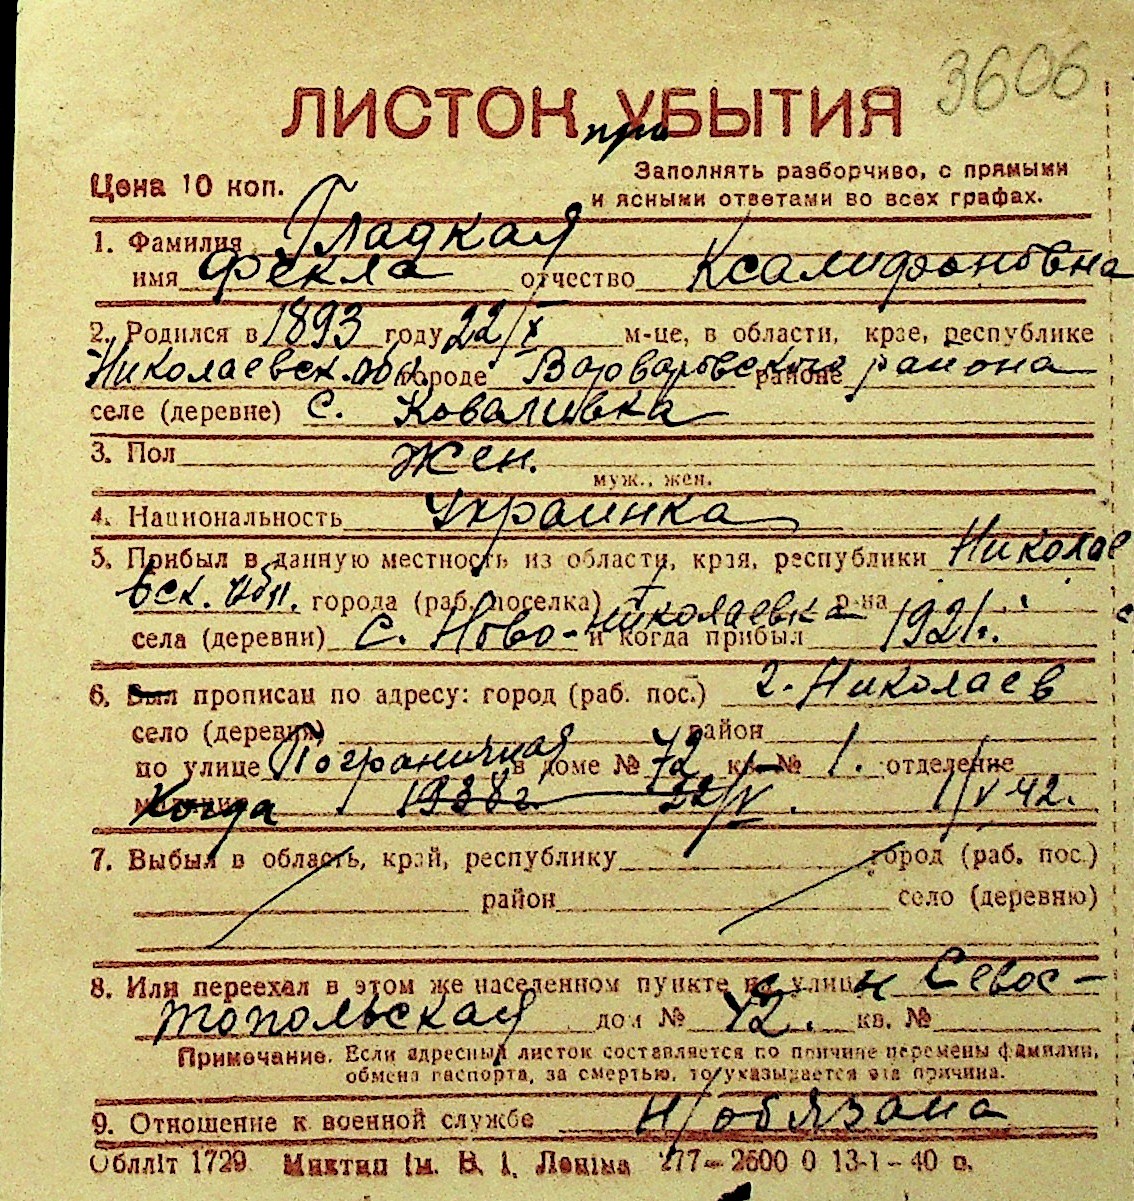 3606
ЛИСТОК УБЫТИЯ
при
Цена 10 коп.
Заполнять разборчиво, с прямыми
и ясными ответами во всех графах.
1. Фамилия Гладкая
имя Фекла отчество Ксалифоновна
2. Родился в 1893 году 22/X м-це, в области, крае, республике
Николаевск. обл. городе Варваровского районе района
селе (деревне) с. Ковалівка
3. Пол Жен.
муж., жен.
4. Национальность Украинка
5. Прибыл в данную местность из области, края, республики Николае
вск. обл. города (раб. поселка) р-на
села (деревни) с. Ново-Николаевка и когда прибыл 1921.
6. Был прописан по адресу: город (раб. пос.) г. Николаев
село (деревня) район
по улице Пограничная в доме № 72 кв. № 1. отделение
Когда 1938 г. 1/V 42.
7. Выбыл в область, край, республику город (раб. пос.)
район село (деревню)
8. Или переехал в этом же населенном пункте на улицу Н Севос-
топольская дом № 42. кв. №
Примечание. Если адресный листок составляется по причине перемены фамилии,
обмена паспорта, за смертью, то указывается эта причина.
9. Отношение к военной службе н/обязана
Обллiт 1729 Миктип iм. В. I. Ленiна 277—2600 0 13-1-40 р.